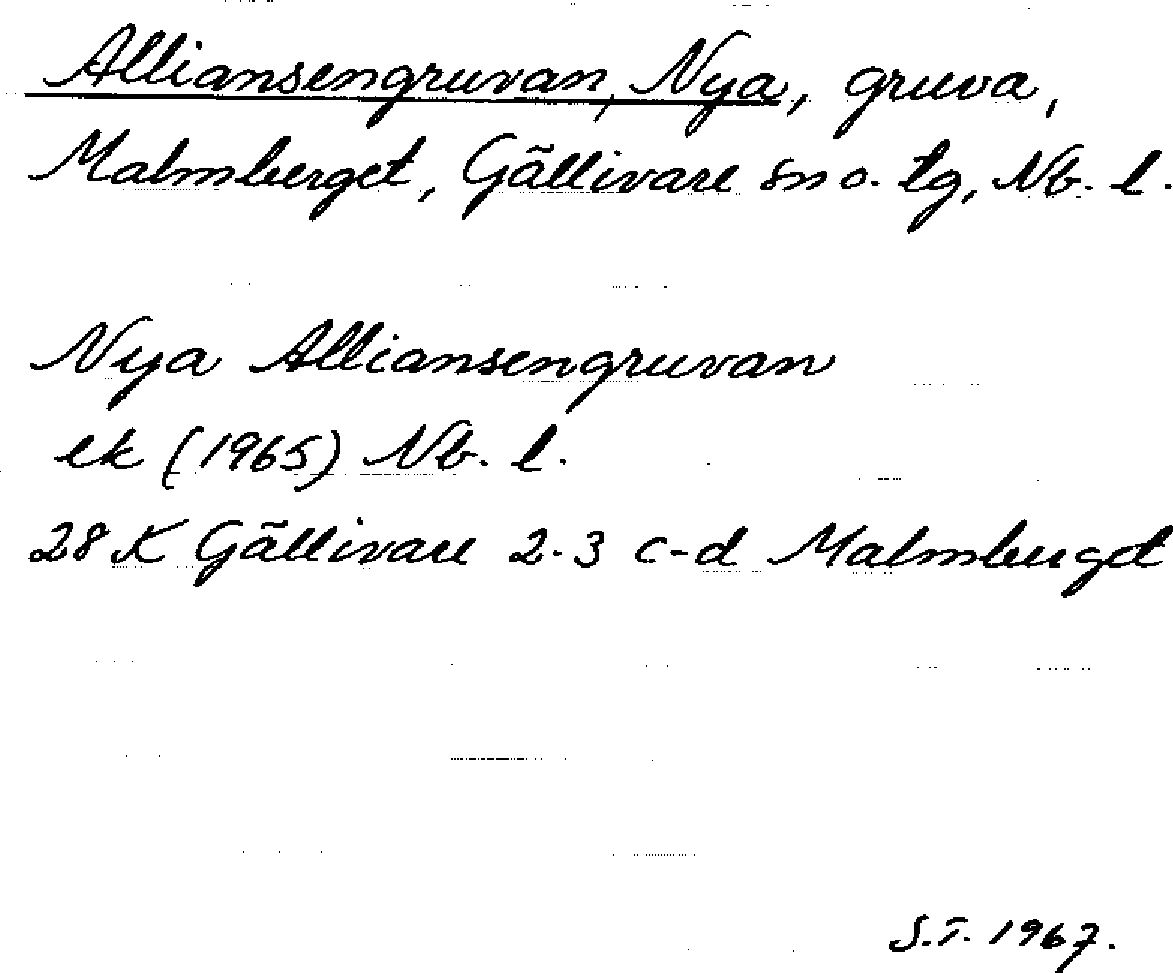 Alliansengruvan, Nya, gruva,
Malmberget, Gällivare sn o. tg, Nb. l.
Nya Alliansengruvan
ek (1965) Nb. l.
28 K Gällivare 2-3 c-d Malmberget
S.T. 1967.